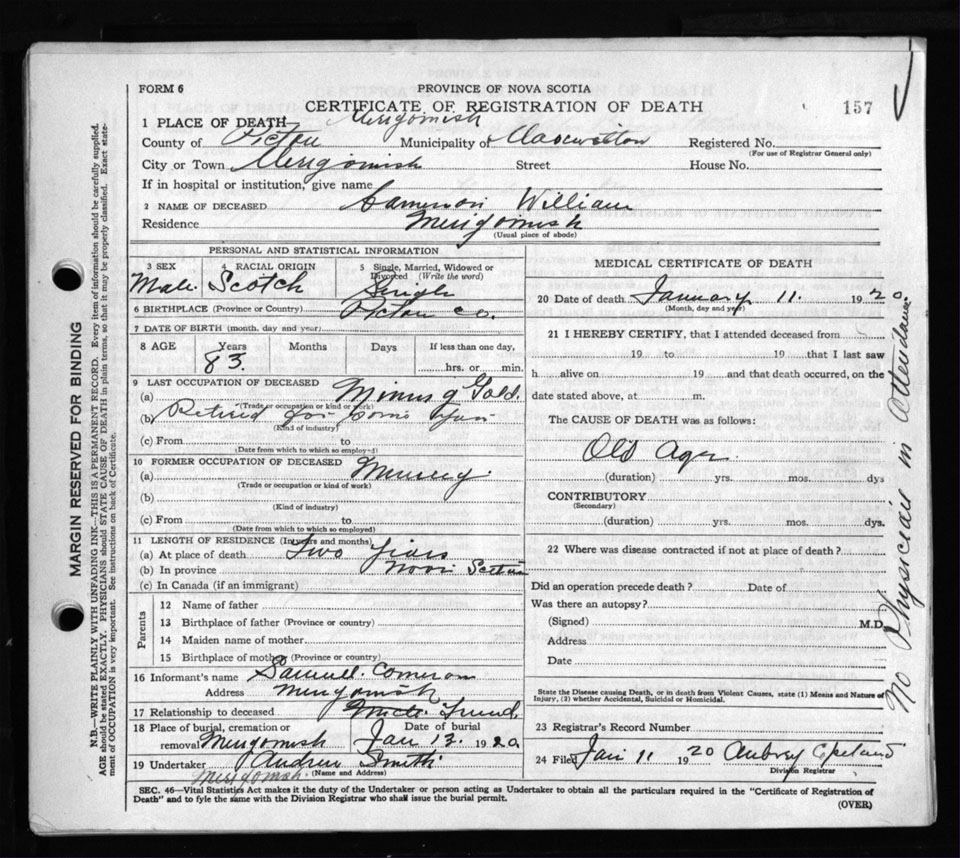 FORM 6
PROVINCE OF NOVA SCOTIA
CERTIFICATE OF REGISTRATION OF DEATH
157
1 PLACE OF DEATH Merigomish
County of Pictou Municipality of Registered No.
(For use of Registrar General only)
City or Town Merigomish Street House No.
If in hospital or institution, give name
2 NAME OF DECEASED Cameron William
Residence Merigomish
(Usual place of abode)
PERSONAL AND STATISTICAL INFORMATION
3 SEX 4 RACIAL ORIGIN 5 Single, Married, Widowed or Divorced (Write the word)
Male. Scotch Single
6 BIRTHPLACE (Province or Country) Pictou Co.
7 DATE OF BIRTH (month, day and year)
8 AGE Years Months Days If less than one day,
83. hrs. or min.
9 LAST OCCUPATION OF DECEASED
(a) Mining Gold.
(Trade or occupation or kind of work)
(b) Retired for some
(Kind of industry)
(c) From to
(Date from which to which so employed)
10 FORMER OCCUPATION OF DECEASED
(a) Mining
(Trade or occupation or kind of work)
(b)
(Kind of industry)
(c) From to
(Date from which to which so employed)
11 LENGTH OF RESIDENCE (In years and months)
(a) At place of death Two Years
(b) In province Nova Scotia
(c) In Canada (if an immigrant)
Parents
12 Name of father
13 Birthplace of father (Province or country)
14 Maiden name of mother
15 Birthplace of mother (Province or country)
16 Informant's name Samuel Cameron
Address Merigomish
17 Relationship to deceased Friend.
18 Place of burial, cremation or removal Merigomish Date of burial Jan 13 1920
19 Undertaker Andrew Smith
Merigomish. (Name and Address)
MEDICAL CERTIFICATE OF DEATH
20 Date of death January 11. 1920
(Month, day and year)
21 I HEREBY CERTIFY, that I attended deceased from
19 to 19 that I last saw
h alive on 19 and that death occurred, on the
date stated above, at m.
The CAUSE OF DEATH was as follows:
Old Age
(duration) yrs. mos. dys
CONTRIBUTORY
(Secondary)
(duration) yrs. mos. dys.
22 Where was disease contracted if not at place of death?
Did an operation precede death? Date of
Was there an autopsy?
(Signed) M.D.
Address
Date
State the Disease causing Death, or in death from Violent Causes, state (1) Means and Nature of
Injury, (2) whether Accidental, Suicidal or Homicidal.
23 Registrar's Record Number
24 Filed Jan 11 1920 Aubrey Copeland
Division Registrar
SEC. 46—Vital Statistics Act makes it the duty of the Undertaker or person acting as Undertaker to obtain all the particulars required in the "Certificate of Registration of
Death" and to fyle the same with the Division Registrar who shall issue the burial permit.
(OVER)
No Physician in Attendance
MARGIN RESERVED FOR BINDING
N.B.—WRITE PLAINLY WITH UNFADING INK—THIS IS A PERMANENT RECORD. Every item of information should be carefully supplied.
AGE should be stated EXACTLY. PHYSICIANS should STATE CAUSE OF DEATH in plain terms, so that it may be properly classified. Exact state-
ment of OCCUPATION is very important. See instructions on back of Certificate.